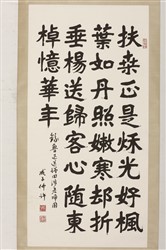 扶桑正是秋光好楓
葉如丹照嫩寒却折
垂楊送歸客心隨東
棹憶華年
錄魯迅送增田涉君歸國
戊子